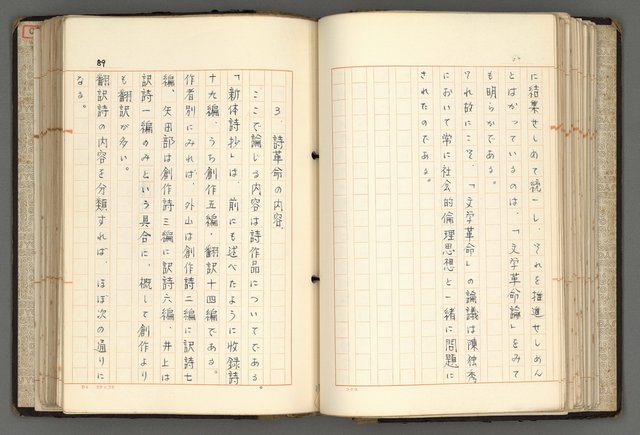 に結集せしめて統一し、それを推進せしめん
とはかっているのは、「文学革命論」をみて
も明らかである。
それ故にこそ、「文学革命」の論議は陳独秀
において常に社会的倫理思想と一緒に問題に
されたのである。
89
3. 詩革命の内容.
ここで論じる内容は詩作品についてである
「新体詩抄」は、前にも述べたように收録詩
十九編、うち創作五編・翻訳十四編である。
作者別にみれば、外山は創作詩二編に訳詩七
編、矢田部は創作詩三編に訳詩六編、井上は
訳詩一編のみという具合に、概して創作より
も翻訳が多い。
翻訳詩の内容を分類すれば、ほぼ次の通りに
なる。